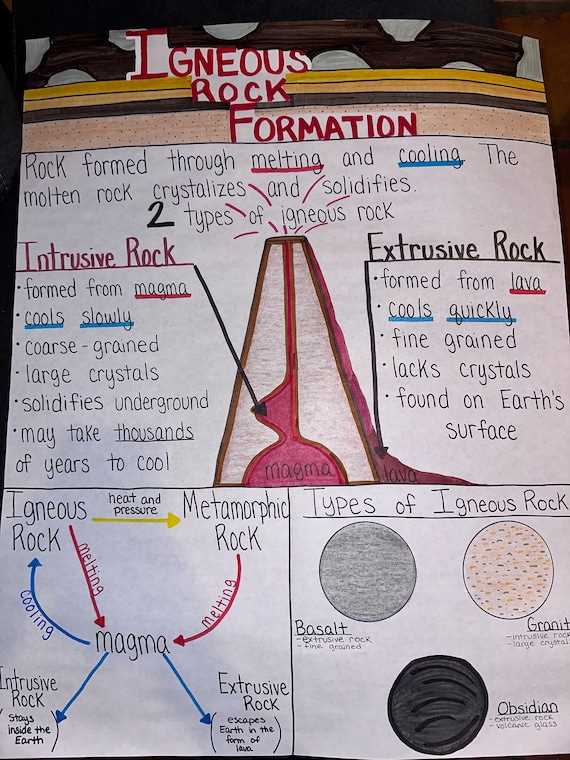 IGNEOUS
ROCK
FORMATION
Rock formed through melting and cooling The
molten rock crystalizes and solidifies.
2 types of igneous rock
Intrusive Rock
• formed from magma
• cools slowly
• coarse-grained
• large crystals
• solidifies underground
• may take thousands
of years to cool
Extrusive Rock
• formed from lava
• cools quickly
• fine grained
• lacks crystals
• found on Earth's
surface
magma
lava
Igneous
Rock
heat and
pressure
Metamorphic
Rock
melting
melting
cooling
magma
Intrusive
Rock
(Stays
inside the
Earth)
Extrusive
Rock
(escapes
Earth in the
form of
lava)
Types of Igneous Rock
Basalt
- extrusive rock
- fine grained
Granit
- intrusive rock
- large crystal
Obsidian
- extrusive rock
- volcanic glass